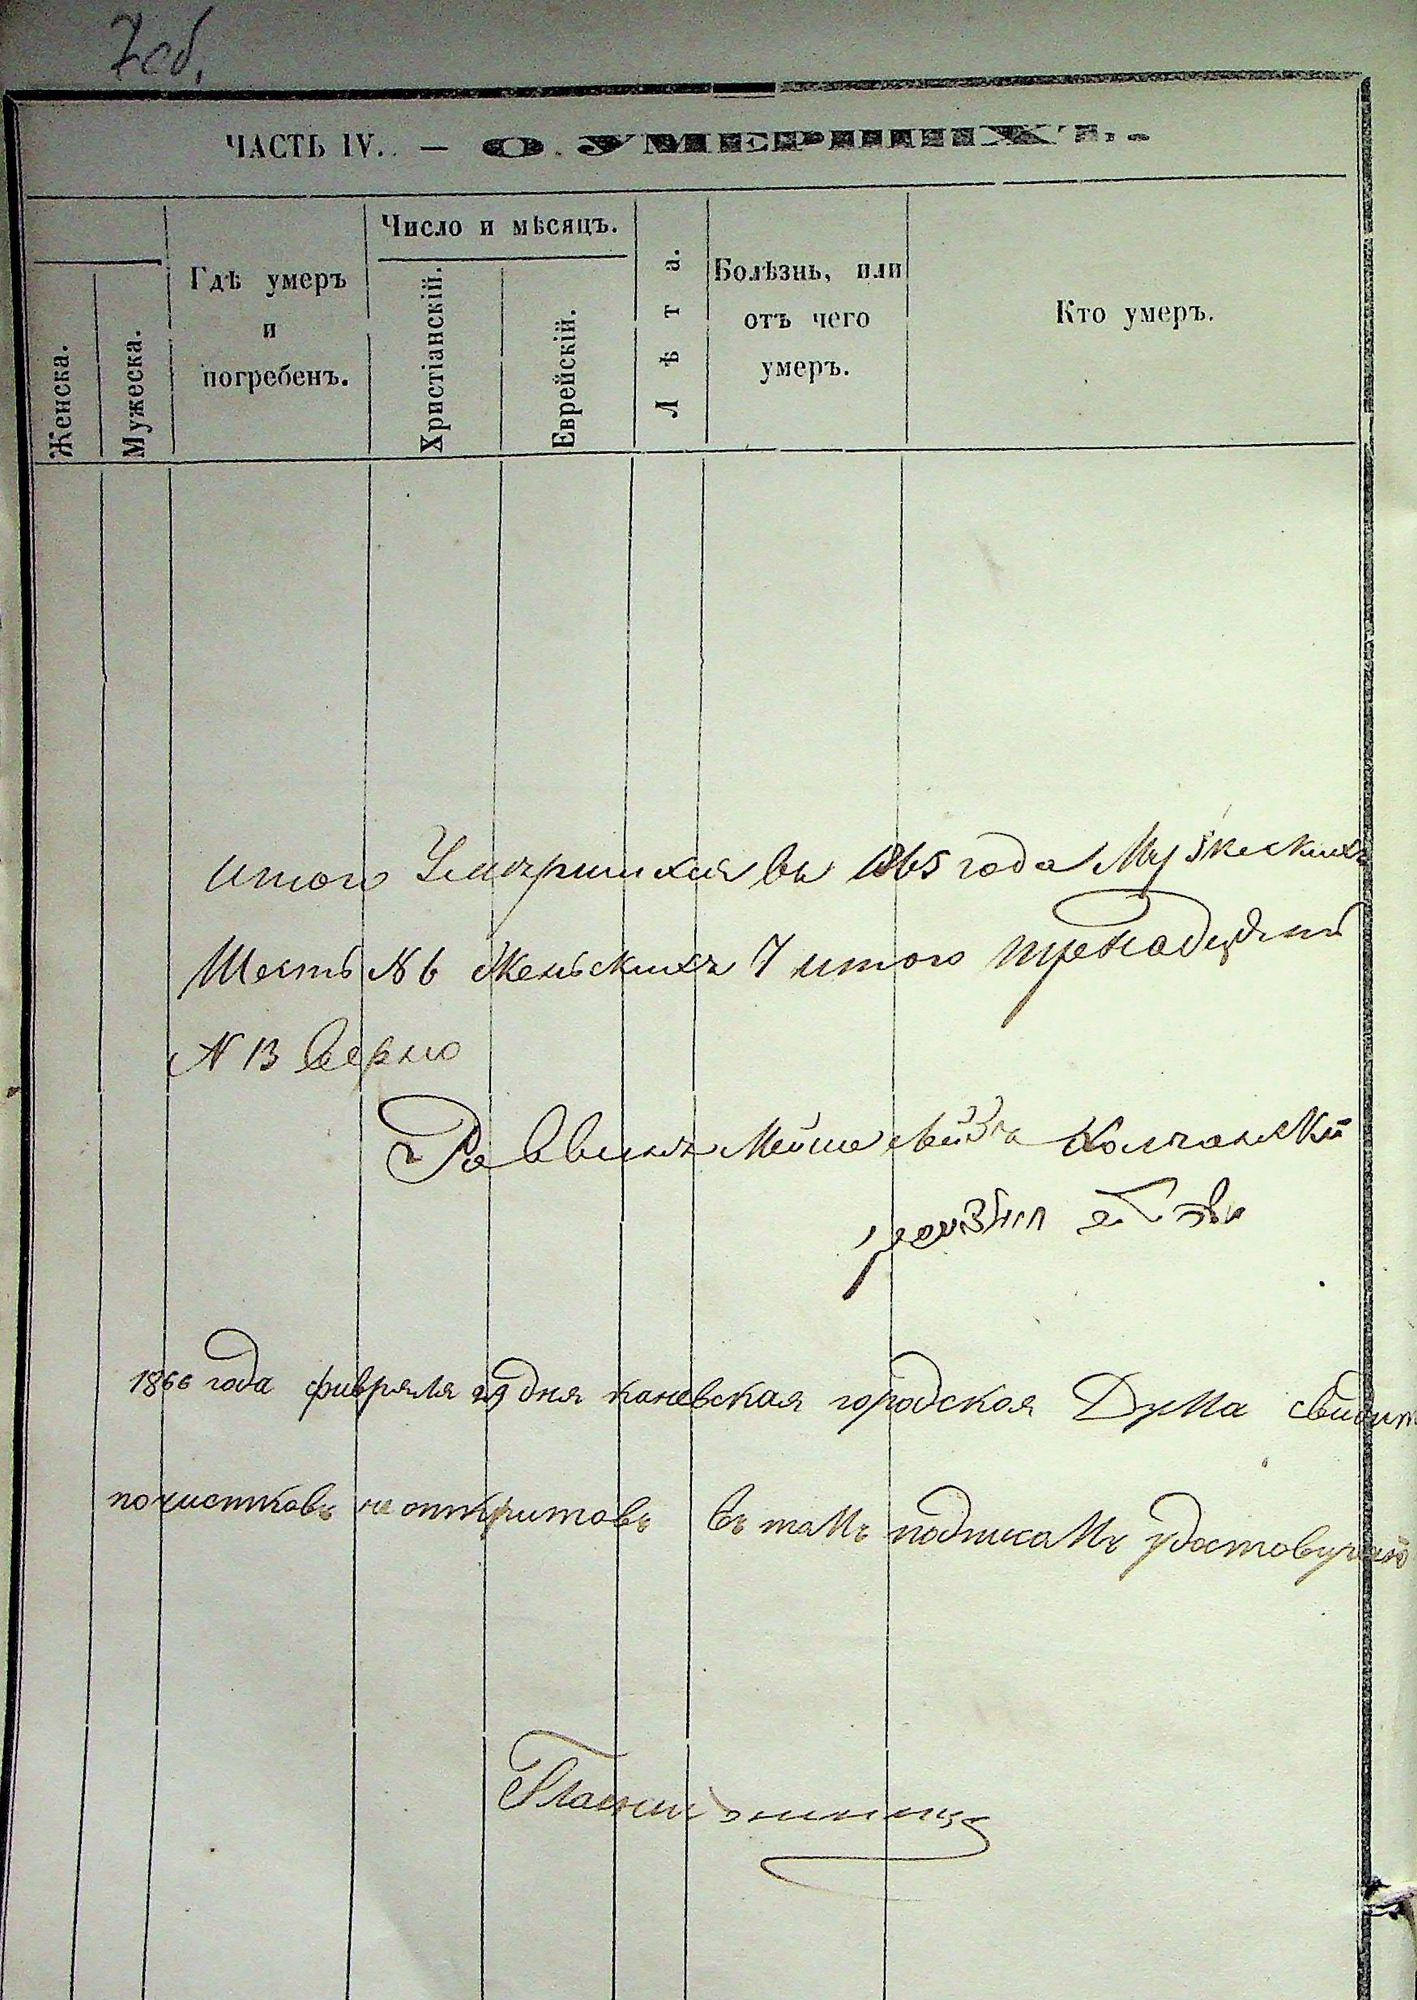 7 об.
ЧАСТЬ IV. — О УМЕРШИХЪ.
Женска.
Мужеска.
Гдѣ умеръ и погребенъ.
Число и мѣсяцъ.
Христіанскій.
Еврейскій.
Лѣта.
Болѣзнь, или отъ чего умеръ.
Кто умеръ.
итого Умершихъ въ 1865 года Мужескихъ
Шесть № 6 женьскихъ 7 итого тренадцять
N 13 верно
Раввинъ Мейше Колчанскій
1866 года февряля 29 дня каневская городская Дума свидит
почистковъ не откритовъ въ томъ подписомъ